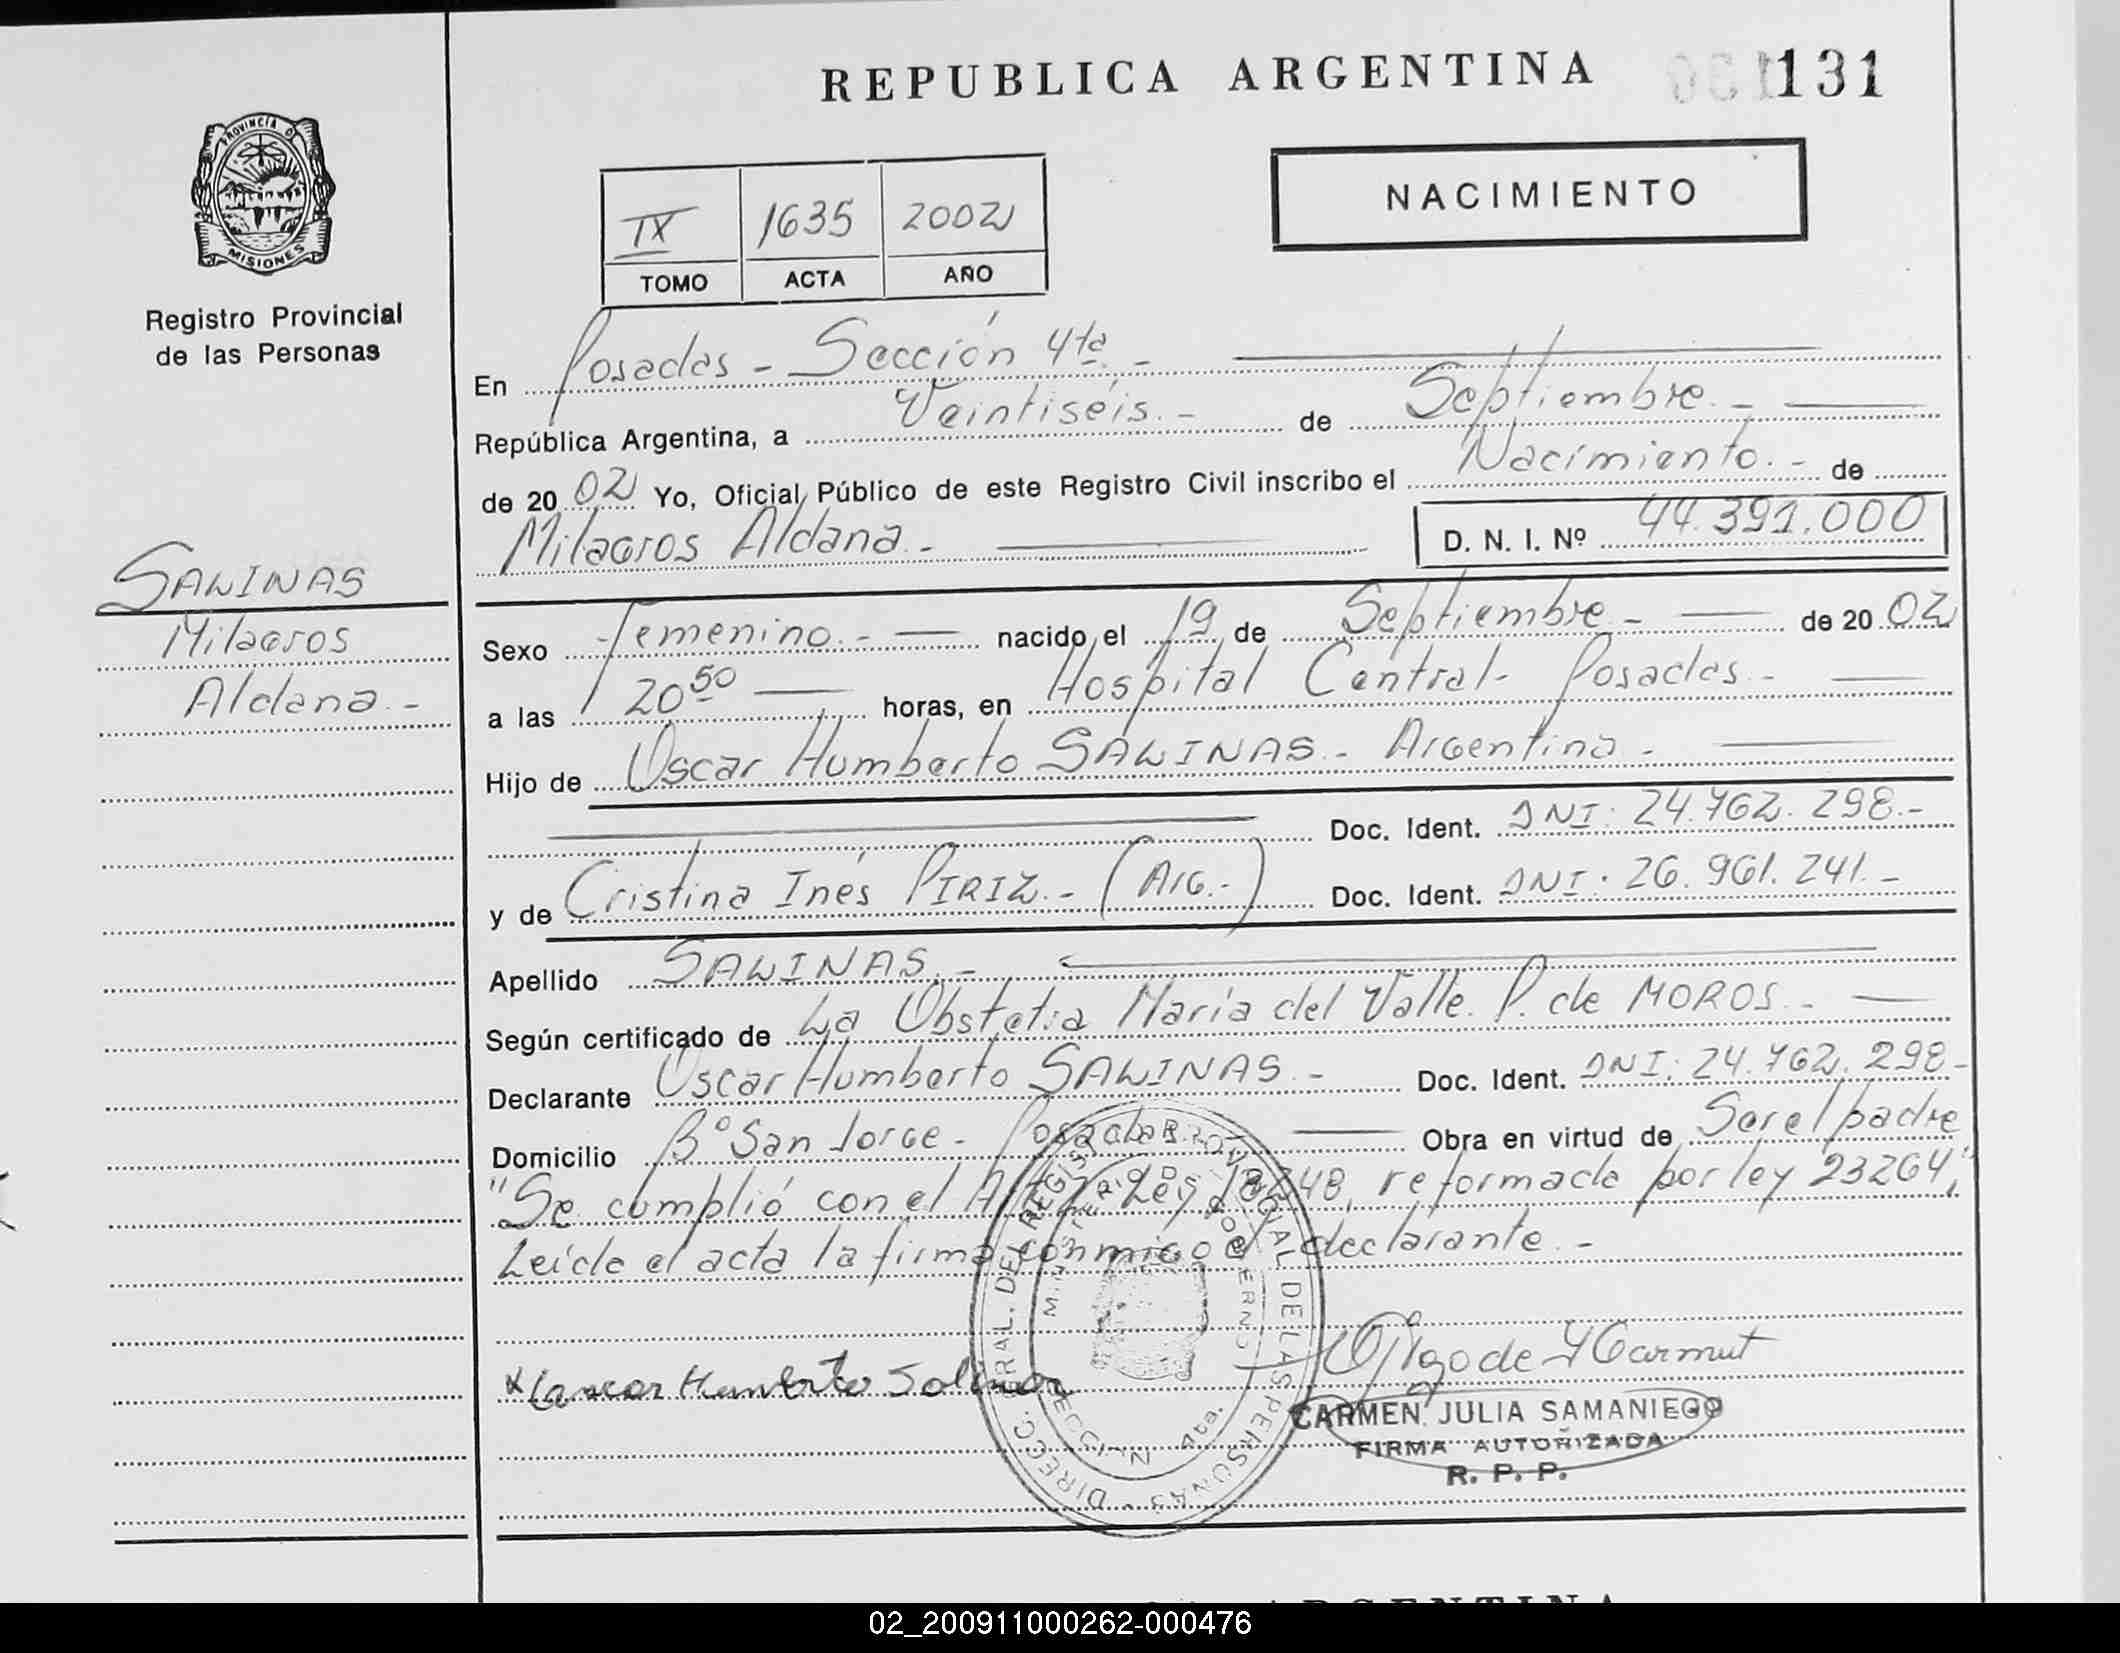 REPUBLICA ARGENTINA
131
PROVINCIA D
MISIONES
Registro Provincial
de las Personas
NACIMIENTO
IX 1635 2002
TOMO ACTA AÑO
En Posadas - Sección 4ta. -
República Argentina, a Veintiséis. - de Septiembre. -
de 20 02 Yo, Oficial Público de este Registro Civil inscribo el Nacimiento. - de
Milagros Aldana. - D. N. I. Nº 44.391.000
SALINAS
Milagros
Aldana. -
Sexo Femenino. - nacido el 19 de Septiembre - de 20 02
a las 20 50 horas, en Hospital Central - Posadas. -
Hijo de Oscar Humberto SALINAS. - Argentino. -
Doc. Ident. DNI: 24.762.298.-
y de Cristina Inés PIRIZ. - (Arg. -) Doc. Ident. DNI: 26.961.241. -
Apellido SALINAS. -
Según certificado de La Obstetra María del Valle P. de MOROS. -
Declarante Oscar Humberto SALINAS. - Doc. Ident. DNI: 24.762.298 -
Domicilio Bº San Jorge - Posadas Obra en virtud de Ser el padre
"Se cumplió con el Ley 18248, reformada por ley 23264",
Leída el acta la firma conmigo el declarante. -
DIRECC. GRAL. DEL REGISTRO PROVINCIAL DE LAS PERSONAS
MINISTERIO DE GOBIERNO
SECCION 4ta.
x Oscar Humberto Salinas
CARMEN JULIA SAMANIEGO
FIRMA AUTORIZADA
R. P. P.
02_200911000262-000476